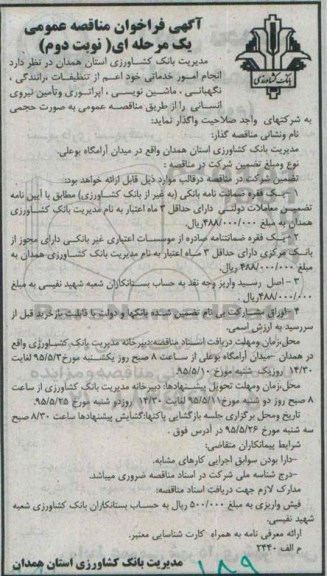 آگهی فراخوان مناقصه عمومی
یک مرحله ای( نوبت دوم)
بانک کشاورزی
مدیریت بانک کشاورزی استان همدان در نظر دارد
انجام امور خدماتی خود اعم از تنظیفات ،رانندگی ،
نگهبانی ، ماشین نویسی ، اپراتوری وتأمین نیروی
انسانی را از طریق مناقصه عمومی به صورت حجمی
به شرکتهای واجد صلاحیت واگذار نماید:
نام ونشانی مناقصه گذار:
مدیریت بانک کشاورزی استان همدان واقع در میدان آرامگاه بوعلی.
نوع ومبلغ تضمین شرکت در مناقصه :
تضمین شرکت در مناقصه درقالب موارد ذیل قابل ارائه خواهد بود:
۱ - یک فقره ضمانت نامه بانکی (به غیر از بانک کشاورزی) مطابق با آیین نامه
تضمین معاملات دولتی دارای حداقل ۳ ماه اعتبار به نام مدیریت بانک کشاورزی
همدان به مبلغ ۴۸۸/۰۰۰/۰۰۰ریال.
۲ - یک فقره ضمانتنامه صادره از موسسات اعتباری غیر بانکی دارای مجوز از
بانک مرکزی دارای حداقل ۳ ماه اعتبار به نام مدیریت بانک کشاورزی همدان به
مبلغ ۴۸۸/۰۰۰/۰۰۰ ریال.
۳ - اصل رسید واریز وجه نقد به حساب بستانکاران شعبه شهید نفیسی به مبلغ
۴۸۸/۰۰۰/۰۰۰ریال.
۴ - اوراق مشارکت بی نام تضمین شده بانکها و دولت با قابلیت بازخرید قبل از
سررسید به ارزش اسمی.
محل،زمان ومهلت دریافت اسناد مناقصه:دبیرخانه مدیریت بانک کشاورزی واقع
در همدان -میدان آرامگاه بوعلی از ساعت ۸ صبح روز یکشنبه مورخ۹۵/۵/۳ لغایت
۱۴/۳۰ روزیک شنبه مورخ ۹۵/۵/۱۰.
محل،زمان ومهلت تحویل پیشنهادها: دبیرخانه مدیریت بانک کشاورزی از ساعت
۸ صبح روز دو شنبه مورخ۹۵/۵/۱۱ لغایت ۱۴/۳۰ روزدو شنبه مورخ ۹۵/۵/۲۵.
تاریخ ومحل برگزاری جلسه بازگشایی پاکتها:گشایش پیشنهادها ساعت ۸/۳۰ صبح
سه شنبه مورخ ۹۵/۵/۲۶ در آدرس فوق .
شرایط پیمانکاران متقاضی:
-دارا بودن سوابق اجرایی کارهای مشابه.
-درج شناسه ملی شرکت در اسناد مناقصه ضروری میباشد.
مدارک لازم جهت دریافت اسناد مناقصه:
فیش واریزی به مبلغ ۵۰۰/۰۰۰ ریال به حساب بستانکاران بانک کشاورزی شعبه
شهید نفیسی.
ارائه معرفی نامه به همراه کارت شناسایی معتبر.
م الف ۲۴۴۰
مدیریت بانک کشاورزی استان همدان